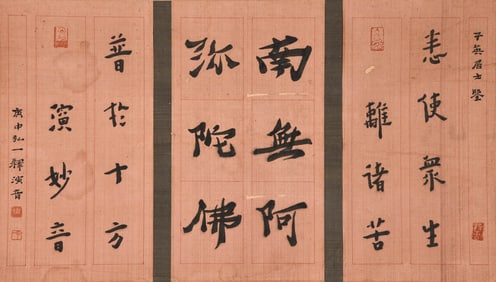 子真居士鑒
悉使衆生
離諸苦
南無阿
弥陀佛
普於十方
演妙音
庚申弘一釋演音